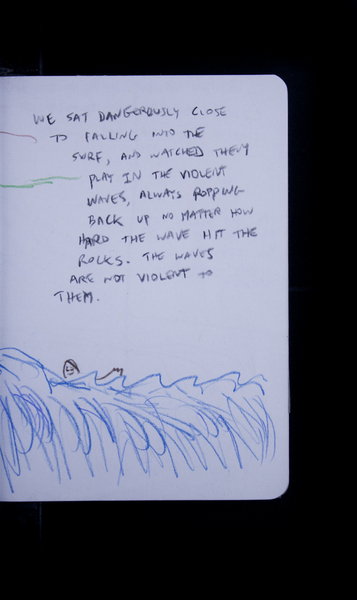 WE SAT DANGEROUSLY CLOSE
TO FALLING INTO THE
SURF, AND WATCHED THEM
PLAY IN THE VIOLENT
WAVES, ALWAYS POPPING
BACK UP NO MATTER HOW
HARD THE WAVE HIT THE
ROCKS. THE WAVES
ARE NOT VIOLENT TO
THEM.